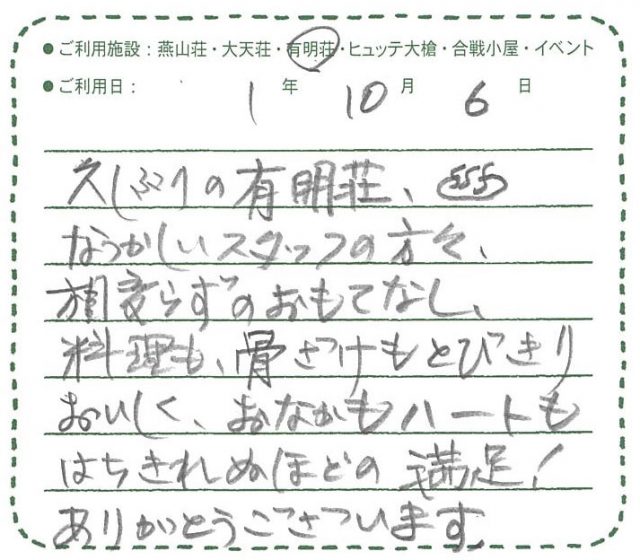 ●ご利用施設：燕山荘・大天荘・有明荘・ヒュッテ大槍・合戦小屋・イベント
●ご利用日： 1 年 10 月 6 日
久しぶりの有明荘、
なつかしいスタッフの方々、
相変らずのおもてなし、
料理も、骨ざけもとびきり
おいしく、おなかもハートも
はちきれぬほどの満足！
ありがとうございます